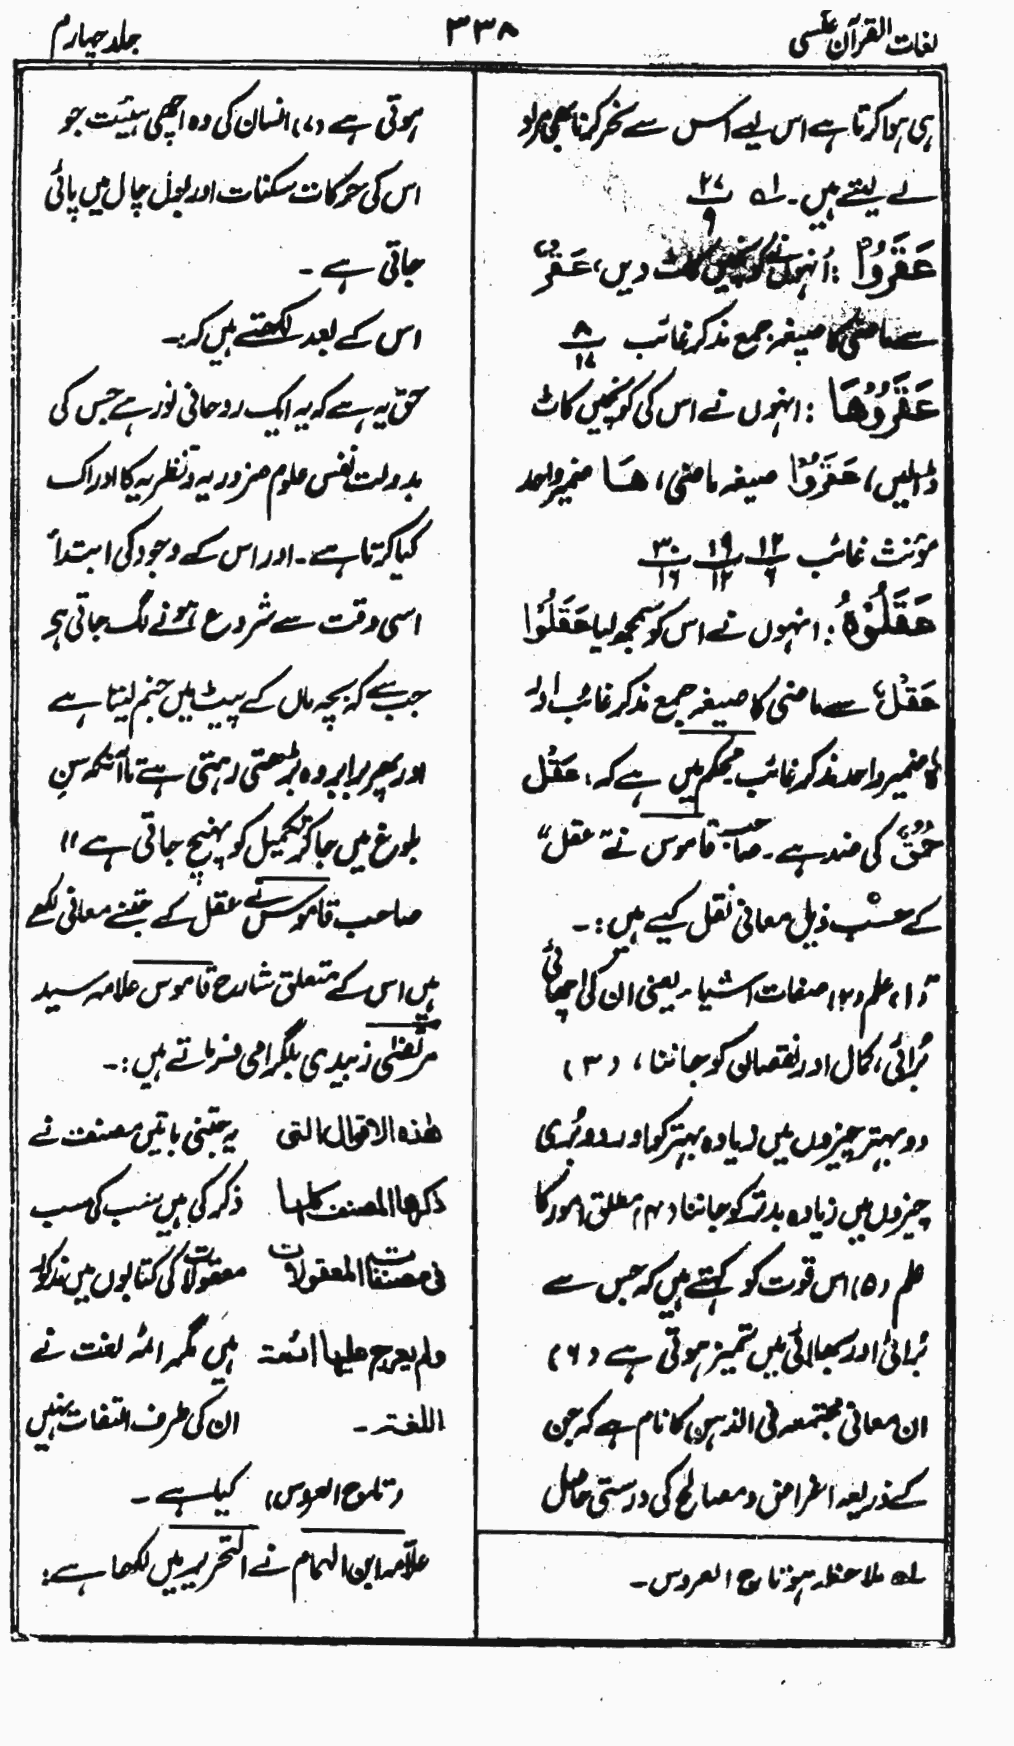 لغات القرآن عکسی
۳۳۸
جلد چہارم
ہی ہوا کرتا ہے اس لیے اس سے نحر کرنا بھی مراد
لے لیتے ہیں۔ لہ ۲۷/۹
عَقَرُوا : اُنہوں نے کونچیں کاٹ دیں، عَقْرٌ
سے ماضی کا صیغہ جمع مذکر غائب ۸/۱۷
عَقَرُوْهَا : انہوں نے اس کی کونچیں کاٹ
ڈالیں، عَقَرُوْا صیغہ ماضی، هَا ضمیر واحد
مؤنث غائب ۱۲/۶ ۱۹/۱۲ ۳۰/۱۶
عَقَلُوْهُ : انہوں نے اس کو سمجھ لیا عَقَلُوْا
عَقْلٌ سے ماضی کا صیغہ جمع مذکر غائب اور
ہٗ ضمیر واحد مذکر غائب محکم میں ہے کہ: عَقْل
حُمْقٌ کی ضد ہے۔ صاحب قاموس نے "عقل"
کے حسب ذیل معانی نقل کیے ہیں:۔
(۱) علم (۲) صفات اشیاء یعنی ان کی اچھائی
بُرائی، کمال اور نقصان کو جاننا، (۳)
دو بہتر چیزوں میں زیادہ بہتر کو اور دو بُری
چیزوں میں زیادہ بدتر کو جاننا (۴) مطلق امور کا
علم (۵) اس قوت کو کہتے ہیں کہ جس سے
بُرائی اور بھلائی میں تمیز ہوتی ہے (۶)
ان معانی مجتمعہ فی الذہن کا نام ہے کہ جن
کے ذریعہ اغراض و مصالح کی درستی حاصل
لہ ملاحظہ ہو تاج العروس۔
ہوتی ہے (۷) انسان کی وہ اچھی ہیئت جو
اس کی حرکات سکنات اور بول چال میں پائی
جاتی ہے۔
اس کے بعد لکھتے ہیں کہ:۔
حق یہ ہے کہ یہ ایک روحانی نور ہے جس کی
بدولت نفس علوم ضروریہ و نظریہ کا ادراک
کیا کرتا ہے۔ اور اس کے وجود کی ابتداءً
اسی وقت سے شروع ہونے لگ جاتی ہے
جب سے کہ بچہ ماں کے پیٹ میں جنم لیتا ہے
اور پھر برابر وہ بڑھتی رہتی ہے تا آنکہ سنِ
بلوغ میں جا کر تکمیل کو پہنچ جاتی ہے"
صاحب قاموس نے عقل کے جتنے معانی لکھے
ہیں اس کے متعلق شارح قاموس علامہ سید
مرتضیٰ زبیدی بلگرامی فرماتے ہیں:۔
هٰذه الاقوال التی یہ جتنی باتیں مصنف نے
ذکرها المصنف کلها ذکر کی ہیں سب کی سب
فی مصنفات المعقولات معقولات کی کتابوں میں مذکور
ولم یعرج علیها ائمة ہیں مگر ائمہ لغت نے
اللغة۔ ان کی طرف التفات نہیں
(تاج العروس) کیا ہے۔
علامہ ابن الہمام نے التحریر میں لکھا ہے: